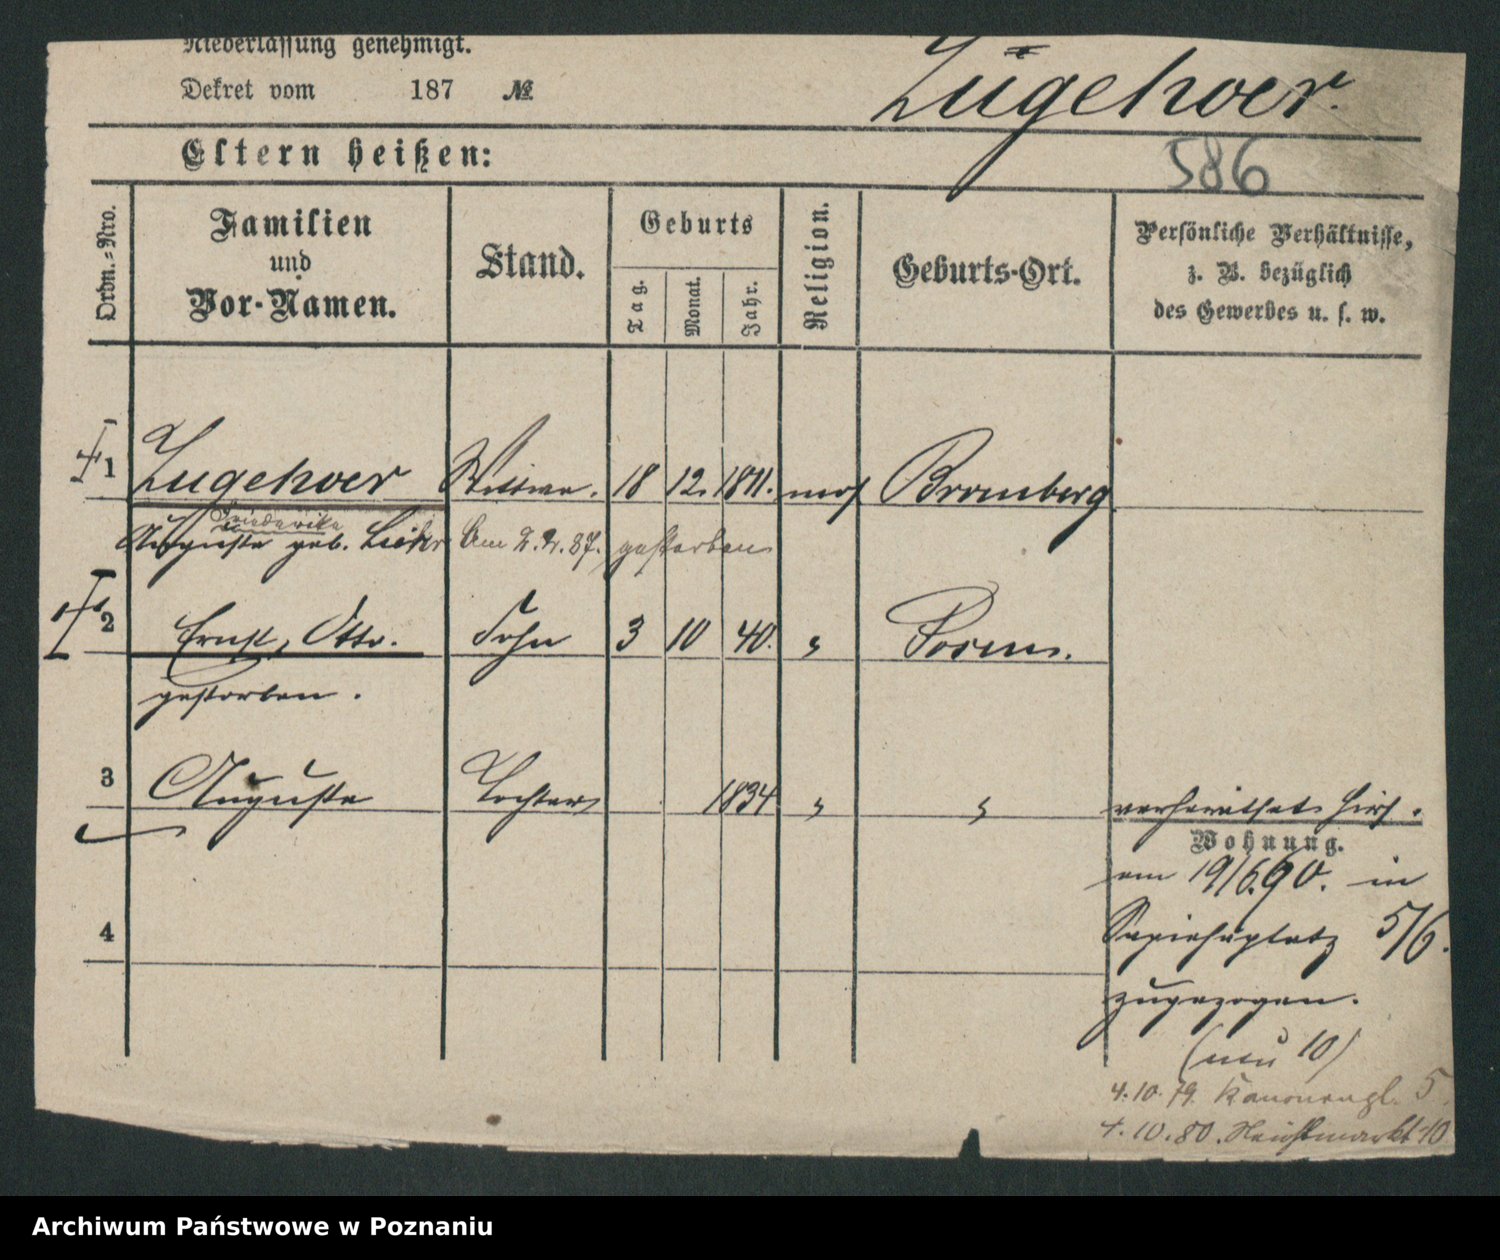 Niederlassung genehmigt.
Dekret vom 187 №
Zugehoer.
Eltern heißen:
586
Ordn.-Nro.
Familien und Vor-Namen.
Stand.
Geburts
Tag. Monat. Jahr.
Religion.
Geburts-Ort.
Persönliche Verhältnisse, z. B. bezüglich des Gewerbes u. s. w.
1 Zugehoer Wittwe. 18 12. 1811. mos Bromberg
Friederike
Auguste geb. Am 2. 2. 87. gestorben
2 Ernst, Otto. Sohn 3 10 40. " Posen.
gestorben.
3 Auguste Tochter 1834 " " verheirathet
Wohnung.
am 19/6.90. in
4 Sapiehaplatz 5/6.
zugezogen.
(neu 10)
4.10.79. Kanonenpl. 5
4.10.80. 10
Archiwum Państwowe w Poznaniu